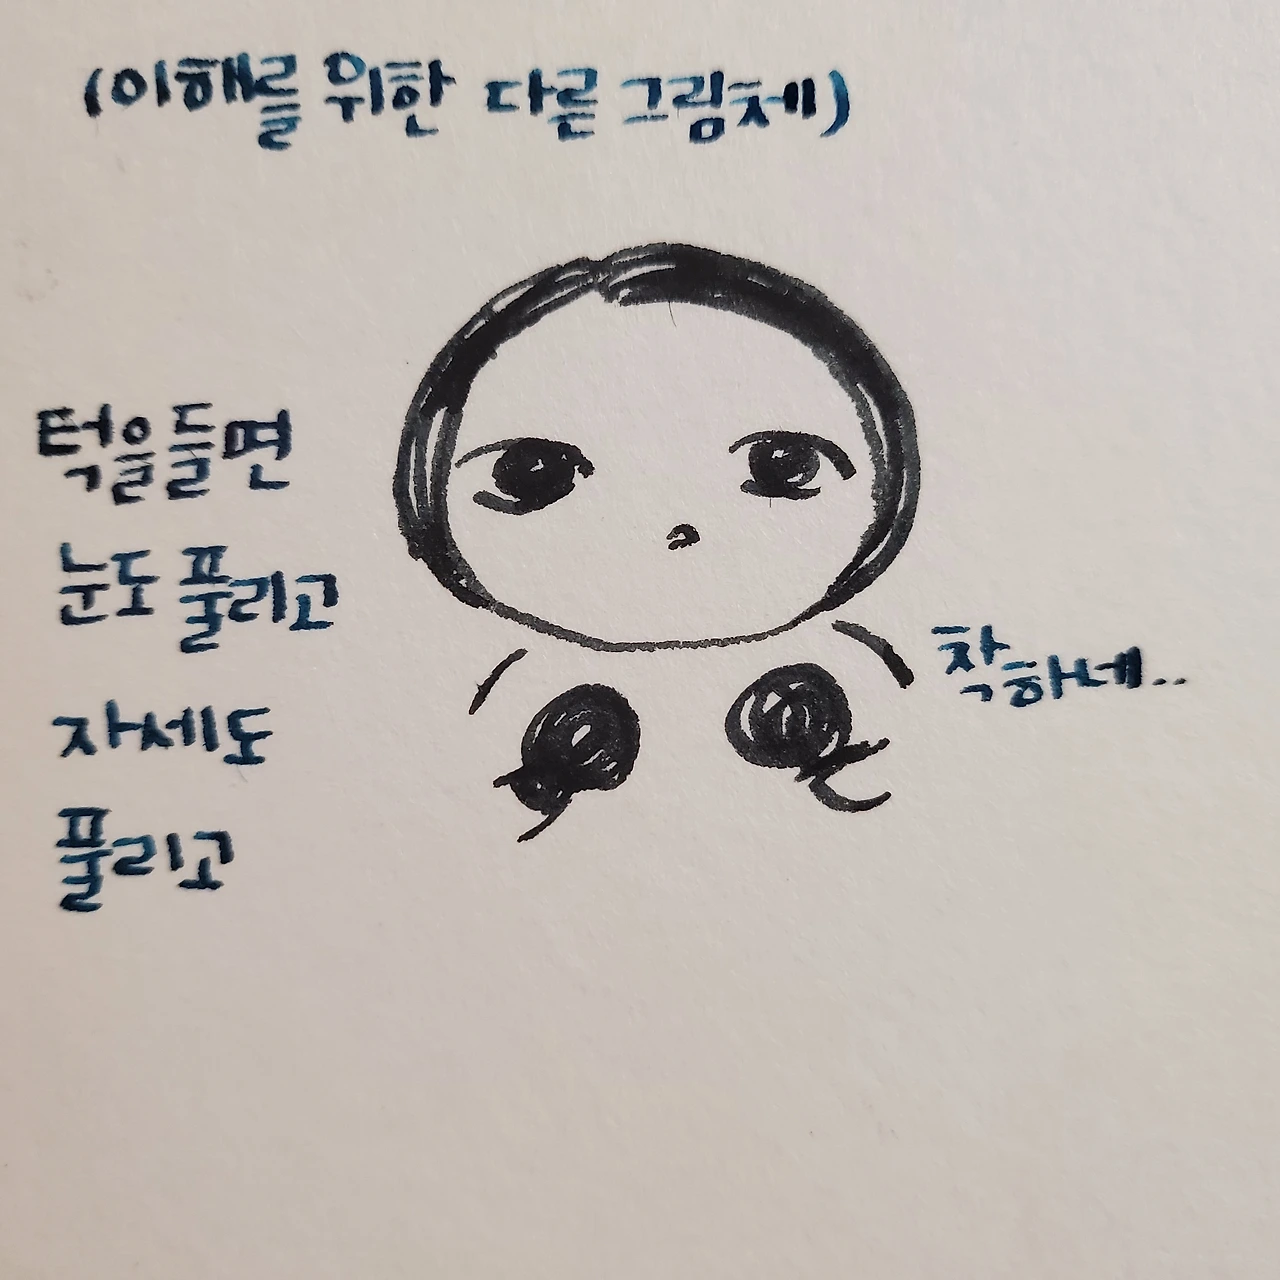 (이해를 위한 다른 그림체)
턱을들면
눈도 풀리고
자세도
풀리고
착하네..